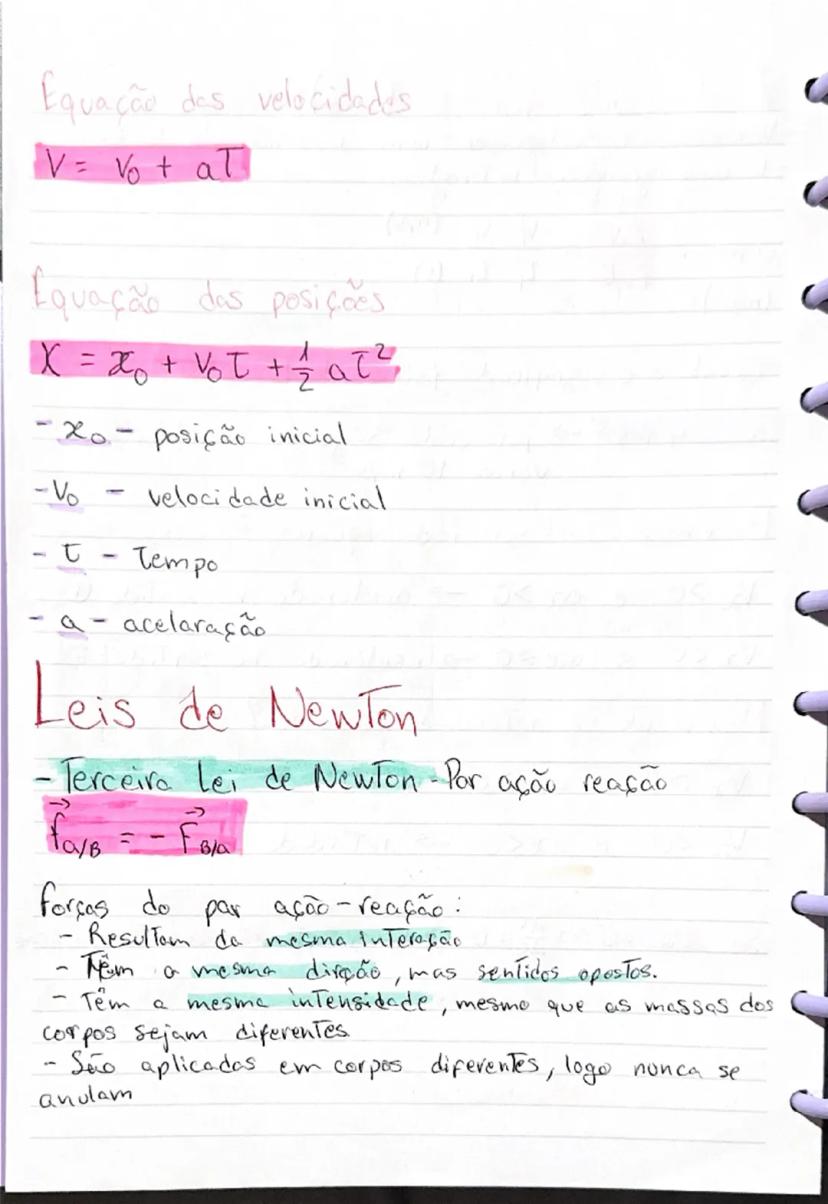 Equação das velocidades
V = V₀ + aT
Equação das posições
X = x₀ + V₀t + 1/2 at²
- x₀ - posição inicial
- V₀ - velocidade inicial
- t - Tempo
- a - acelaração
Leis de Newton
- Terceira Lei de Newton - Par ação reação
f⃗a/B = - F⃗B/a
forças do par ação-reação:
- Resultam da mesma interação
- Têm a mesma direção, mas sentidos opostos.
- Têm a mesma intensidade, mesmo que as massas dos
corpos sejam diferentes
- São aplicadas em corpos diferentes, logo nunca se
anulam